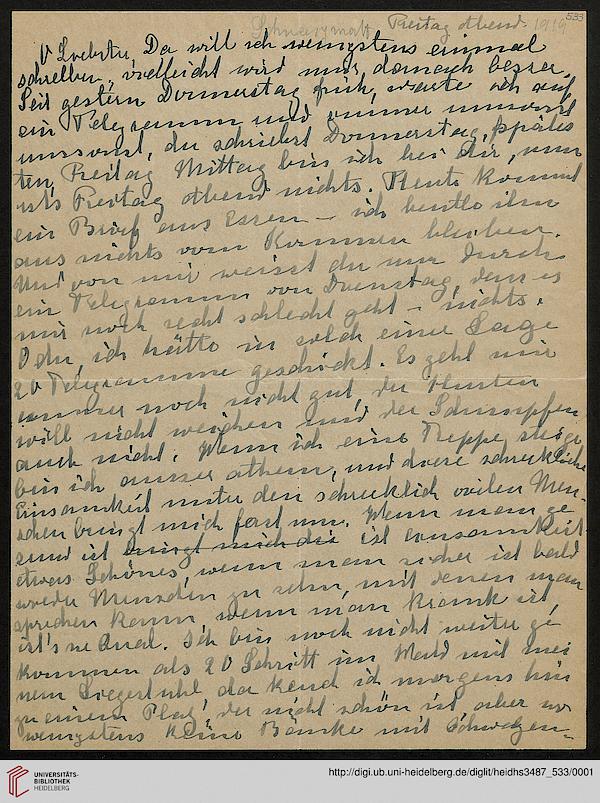 533
Schwarzmatt Freitag Abend. 1919
O Liebster, Da will ich wenigstens einmal
schreiben, vielleicht wird mir danach besser.
Seit gestern Donnerstag früh, warte ich auf
ein Telegramm und immer umsonst
umsonst, du schriebst Donnerstag, späts
ten Freitag Mittag bin ich bei dir, nun
ists Freitag Abend nichts. Heute kommt
ein Brief aus Essen – ich
aus nichts vom Kommen
Und von mir weisst du nur durch
ein Telegramm von Dienstag, dass es
mir noch recht schlecht geht – nichts.
O du, ich hätte in solch einer Lage
20 Telegramme geschickt. Es geht mir
immer noch nicht gut, der Husten
will nicht weichen und der Schnupfen
auch nicht. Wenn ich eine Treppe steige
bin ich ausser Athem, und diese schreckliche
Einsamkeit unter den schrecklich vielen Men-
schen bringt mich fast um. Wenn man ge
sund ist bringt mich die ist Einsamkeit
etwas Schönes, wenn man sicher ist bald
wieder Menschen zu sehn, mit denen man
sprechen kann, wenn man krank ist,
ist's ne Qual. Ich bin noch nicht weiter ge
kommen als 20 Schritt im Wald mit mei
nem Liegestuhl, da ich morgens hin
zu einem Platz, der nicht schön ist, aber wo
wenigstens keine Bänke mit Schwatzen-
UNIVERSITÄTS-
BIBLIOTHEK
HEIDELBERG
http://digi.ub.uni-heidelberg.de/diglit/heidhs3487_533/0001